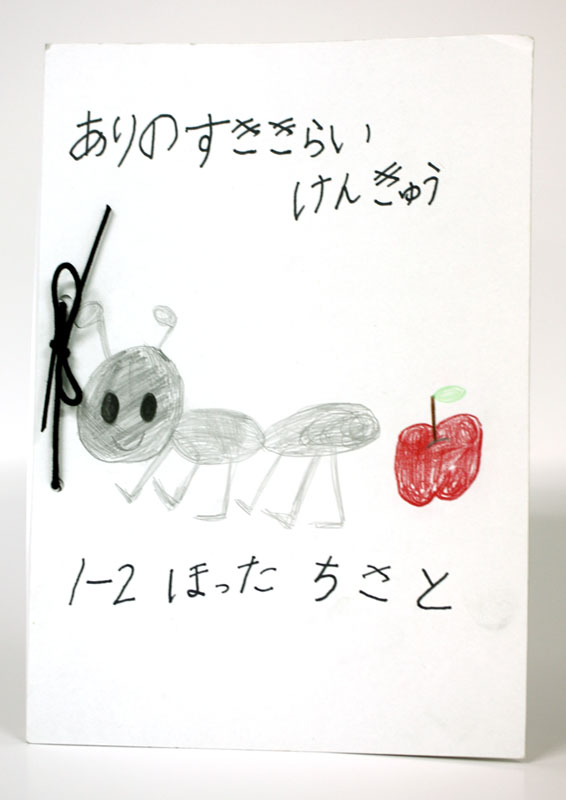 ありのすききらい
けんきゅう
1-2 ほった ちさと